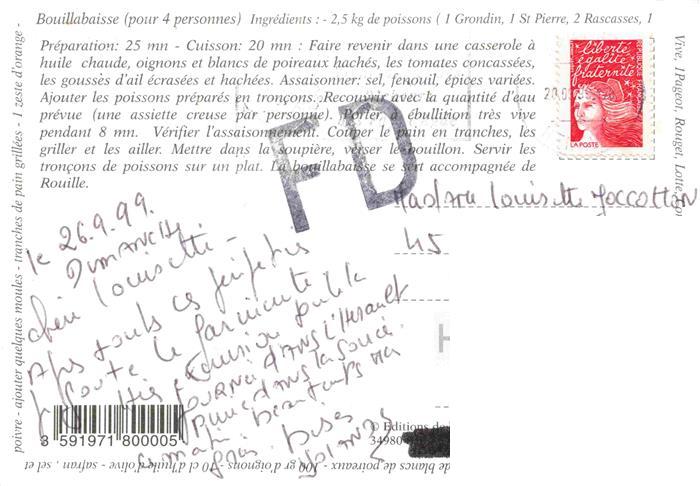 Bouillabaisse (pour 4 personnes) Ingrédients : - 2,5 kg de poissons ( 1 Grondin, 1 St Pierre, 2 Rascasses, 1
Vive, 1Pageot, Rouget, Lotte,
Préparation: 25 mn - Cuisson: 20 mn : Faire revenir dans une casserole à
huile chaude, oignons et blancs de poireaux hachés, les tomates concassées,
les goussès d'ail écrasées et hachées. Assaisonner: sel, fenouil, épices variées.
Ajouter les poissons préparés en tronçons. Recouvrir avec la quantité d'eau
prévue (une assiette creuse par personne). Porter à ébullition très vive
pendant 8 mn. Vérifier l'assaisonnement. Couper le pain en tranches, les
griller et les ailler. Mettre dans la soupière, verser le bouillon. Servir les
tronçons de poissons sur un plat. La bouillabaisse se sert accompagnée de
Rouille.
FD
liberté
égalité
fraternité
LA POSTE
Madame Louisette
45
le 26.9.99.
DIMANCHE
chère Louisette -
Après toutes ces
je goute le farniente
Excursion
JOURNÉE DANS L'Hérault
PLUIE DANS LA SOIRÉE.
ce matin beau temps
gros bises
YOLANDE
3 591971 800005
© Editions de
34980
de blancs de poireaux - 100 gr d'oignons - 10 cl d'huile d'olive - safran - sel et
poivre - ajouter quelques moules - tranches de pain grillées - 1 zeste d'orange -